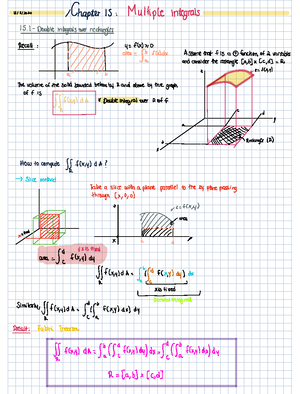 Chapter 15: Multiple integrals
15.1 - Double integrals over rectangles
Recall:
y = f(x) > 0
area = ∫_a^b f(x) dx
Assume that f is a ⊕ function, of 2 variables
and consider the rectangle [a,b] x [c,d] = R
The volume of the solid bounded below by R and above by the graph
of f is
∬_R f(x,y) dA
Double integral over R of f
Rectangle (R)
How to compute ∬_R f(x,y) dA ?
→ Slice method
Take a slice with a plane parallel to the zy plane passing
through (x,0,0)
z = f(x,y)
area
x is fixed
area = ∫_c^d f(x,y) dy
∬_R f(x,y) dA = ∫_a^b (∫_c^d f(x,y) dy) dx
x is fixed
Similarly, ∬_R f(x,y) dA = ∫_c^d (∫_a^b f(x,y) dx) dy
Result: Fubini Theorem
∬_R f(x,y) dA = ∫_a^b (∫_c^d f(x,y) dy) dx = ∫_c^d (∫_a^b f(x,y) dx) dy
R = [a,b] x [c,d]